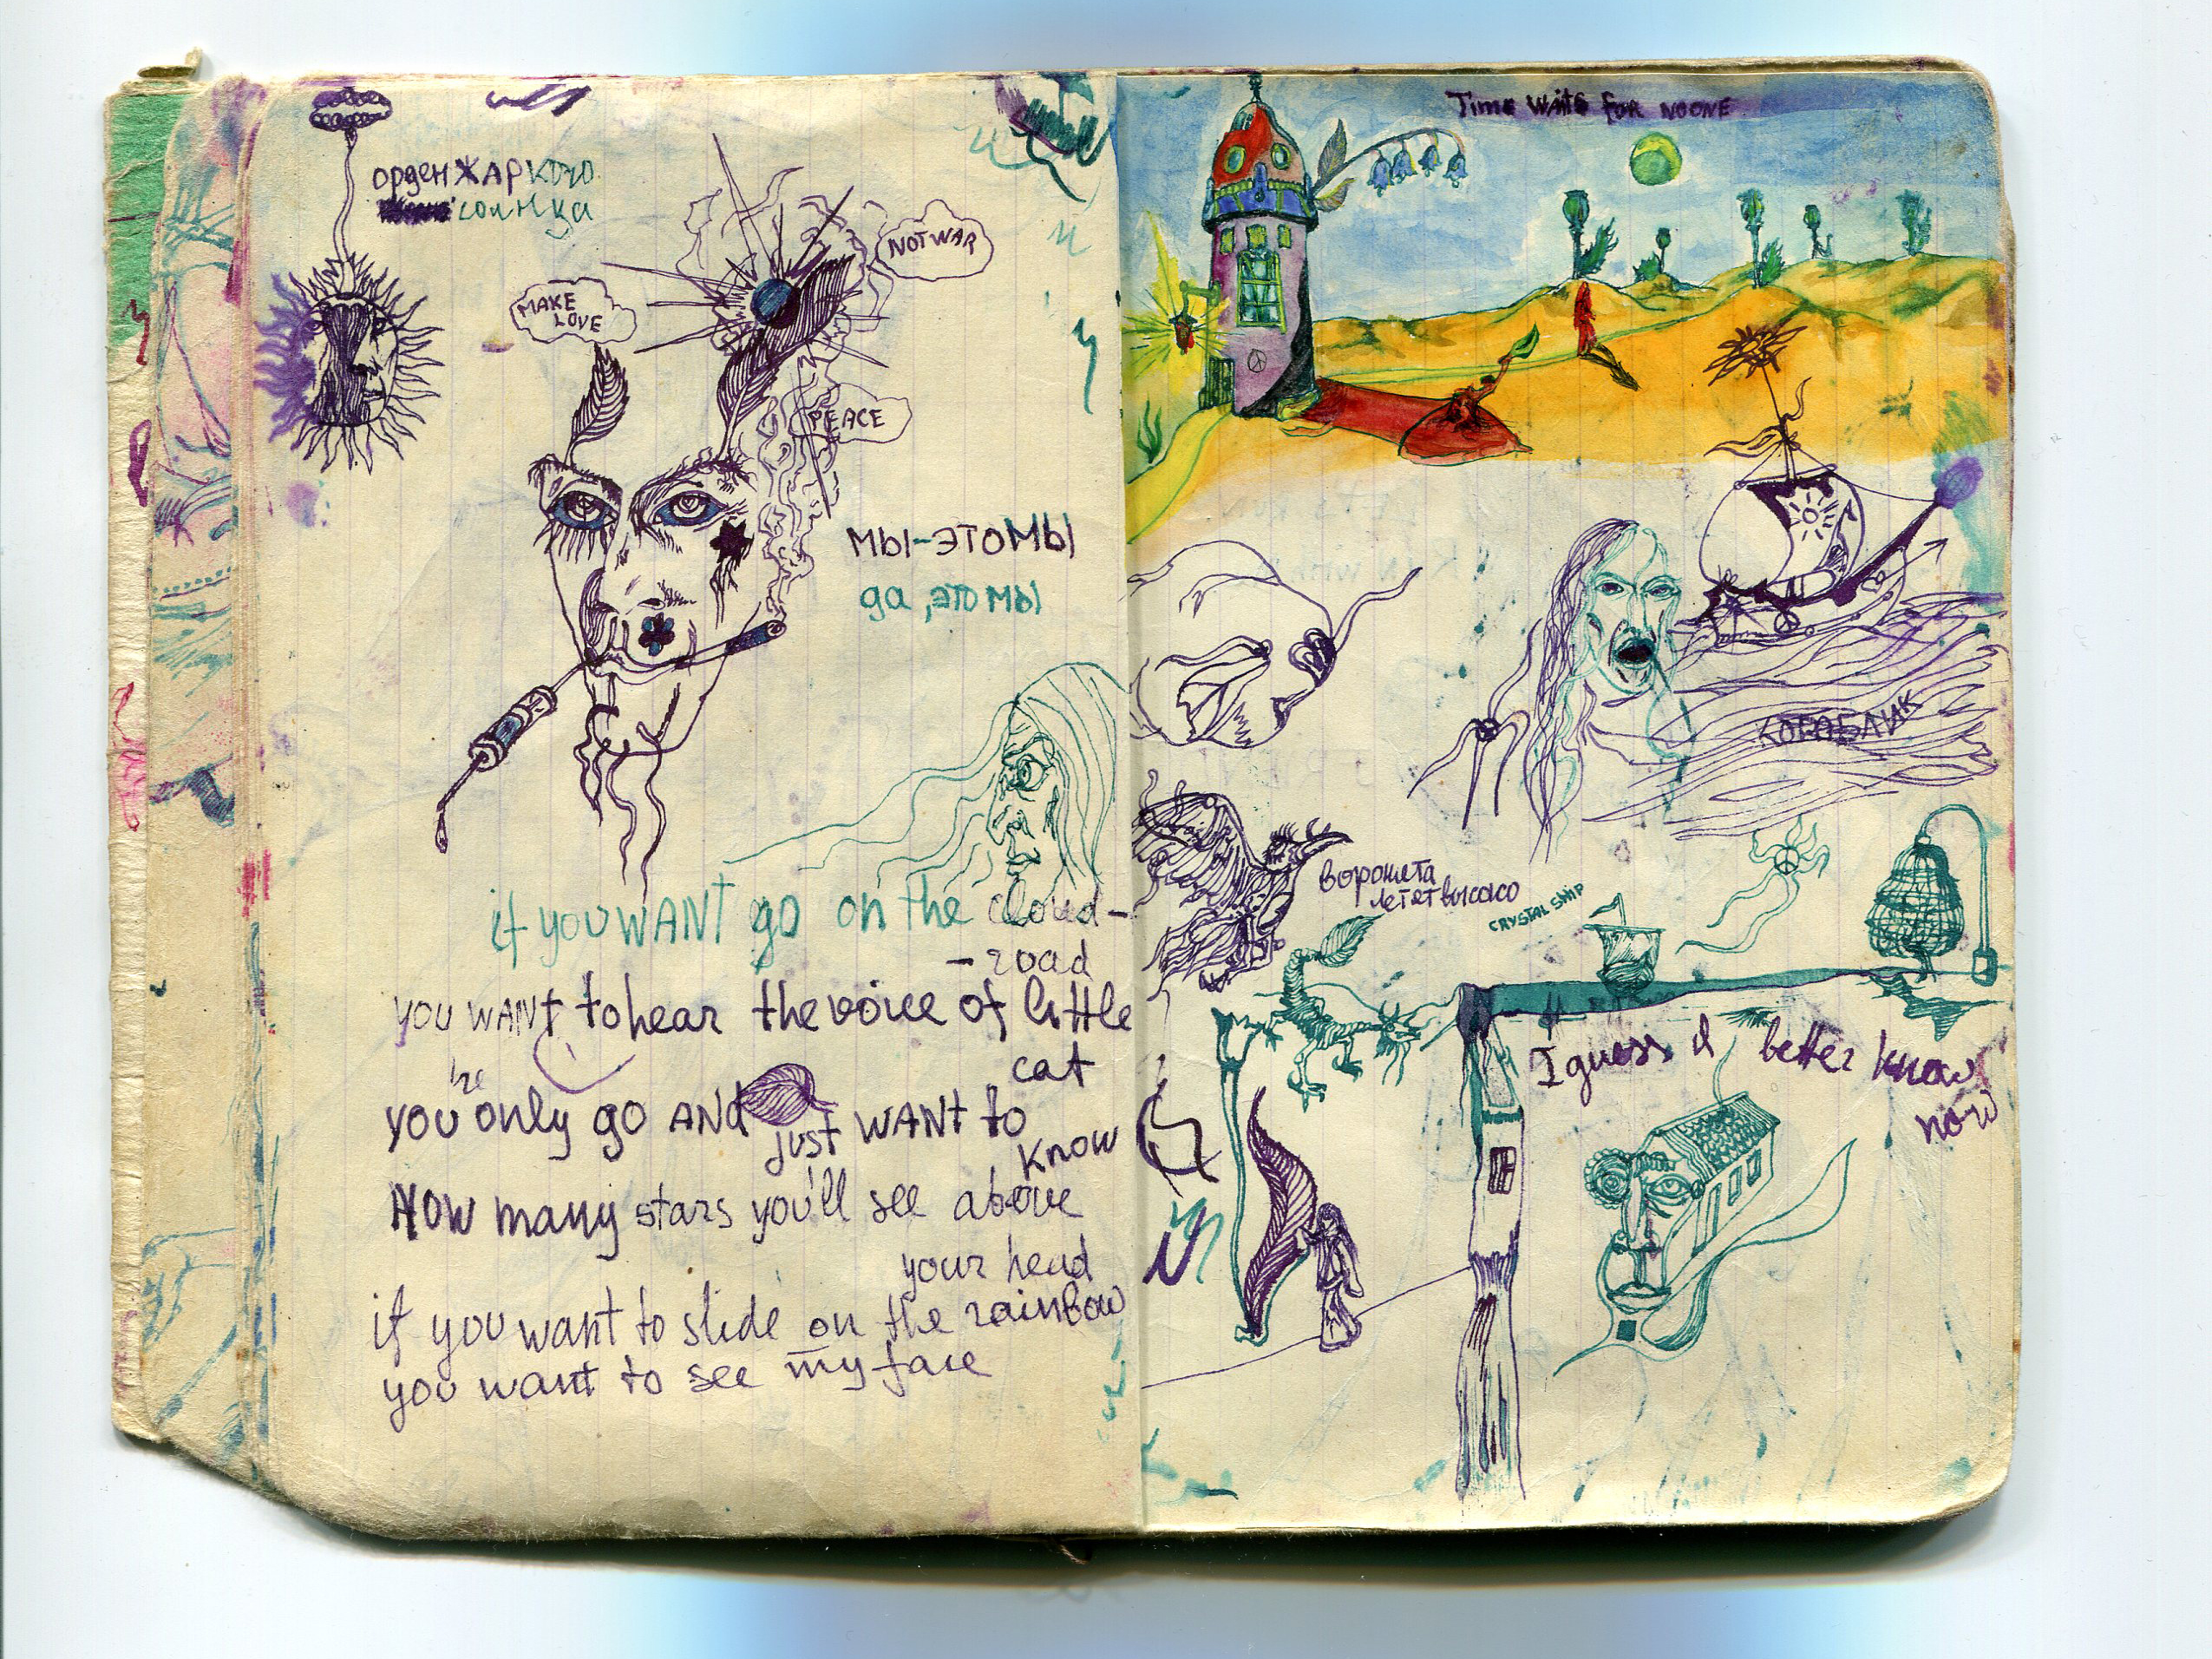 орден ЖАРКОГО
солнца
MAKE
LOVE
NOT WAR
PEACE
МЫ-ЭТО МЫ
да, ЭТО МЫ
if you WANT go on the cloud-
-road
you WANT to hear the voice of little
cat
you only go AND just WANT to
know
HOW many stars you'll see above
your head
if you want to slide on the rainbow
you want to see my face
Time waits for noone
КОРАБЛИК
летет высоко
CRYSTAL SHIP
I guess I better know
now